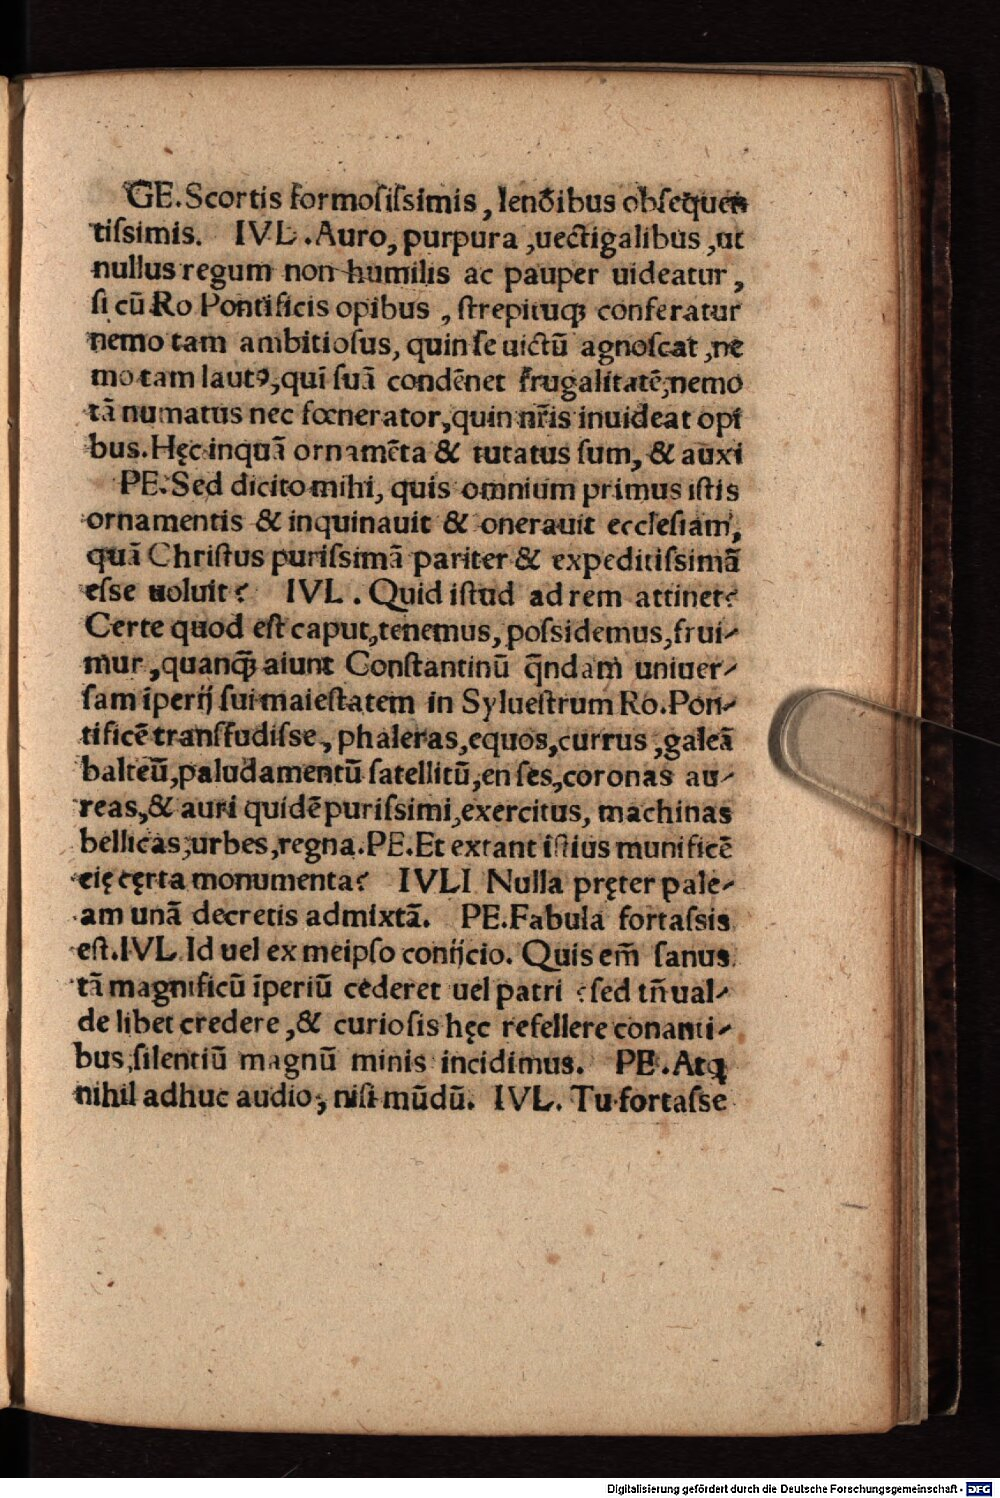 GE. Scortis formosiſsimis, lenõibus obſequen
tiſsimis. IVL. Auro, purpura, uectigalibus, ut
nullus regum non humilis ac pauper uideatur,
ſi cũ Ro Pontificis opibus, ſtrepituqꝫ conferatur
nemo tam ambitioſus, quin ſe uictũ agnoſcat, ne
mo tam lautꝰ, quĩ ſuã condẽnet frugalitatẽ, nemo
tã numatus nec fœnerator, quin nr̃is inuideat opi
bus. Hęc inquã ornamẽta & tutatus ſum, & auxi
PE. Sed dicito mihi, quis omnium primus iſtis
ornamentis & inquinauit & onerauit eccleſiam,
quã Chriſtus puriſsimã pariter & expeditiſsimã
eſse uoluit? IVL. Quid iſtud ad rem attinet?
Certe quod eſt caput, tenemus, poſsidemus, frui-
mur, quanqꝫ aiunt Conſtantinũ q̃ndam uniuer-
ſam ĩperij ſui maieſtatem in Sylueſtrum Ro. Pon-
tificẽ tranſfudiſse, phaleras, equos, currus, galeã
balteũ, paludamentũ ſatellitũ, enſes, coronas au-
reas, & auri quidẽ puriſsimi, exercitus, machinas
bellicas, urbes, regna. PE. Et extant iſtius munificẽ
cię cęrta monumenta? IVLI Nulla pręter pale-
am unã decretis admixtã. PE. Fabula fortaſsis
eſt. IVL. Id uel ex meipſo conijcio. Quis em̃ ſanus
tã magnificũ ĩperiũ cederet uel patri? ſed tñ ual-
de libet credere, & curioſis hęc refellere conanti-
bus, ſilentiũ magnũ minis incidimus. PE. Atqꝫ
nihil adhuc audio, niſi mũdũ. IVL. Tu fortaſse
Digitalisierung gefördert durch die Deutsche Forschungsgemeinschaft - DFG